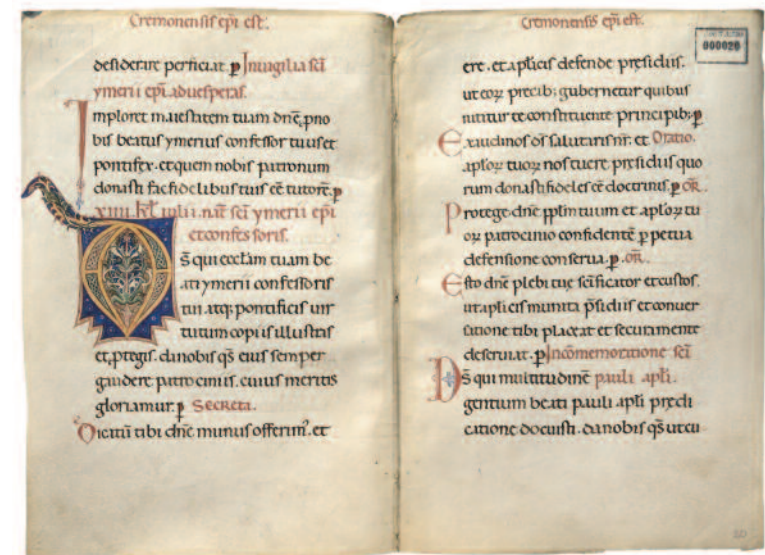 Cremonensis epi est.
desiderare perficiat. p In uigilia sci
ymerii epi aduesperas.
Imploret maiestatem tuam dne, pno
bis beatus ymerius confessor tuus et
pontifex. et quem nobis patronum
donasti fac fidelibus tuis ee tutore. p
xiiii. kl. iulii. nat sci ymerii epi
et confessoris.
Ds qui ecclam tuam be
ati ymerii confessoris
tui. atq; pontificis uir
tutum copiis illustras
et ptegis. da nobis qs eius semper
gaudere patrociniis. cuius meritis
gloriamur. p Secreta.
Dicatu tibi dne munus offerim. et
Cremonensis epi est.
000020
ere. et aplicis defende presidiis.
ut eoꝝ precib; gubernetur quibus
nititur te constituente principib; p
Exaudi nos ds salutaris nr. et Oratio.
aploꝝ tuoꝝ nos tuere presidiis quo
rum donasti fideles ee doctrinis. p oR.
Protege dne pplm tuum et aploꝝ tu
oꝝ patrocinio confidente ppetua
defensione conserua. p. oR.
Esto dne plebi tue scificator et custos.
ut aplicis munita psidiis et conuer
satione tibi placeat et secura mente
deseruiat. p In comemoratione sci
Ds qui multitudine pauli apli.
gentium beati pauli apli predi
catione docuisti. da nobis qs ut cu